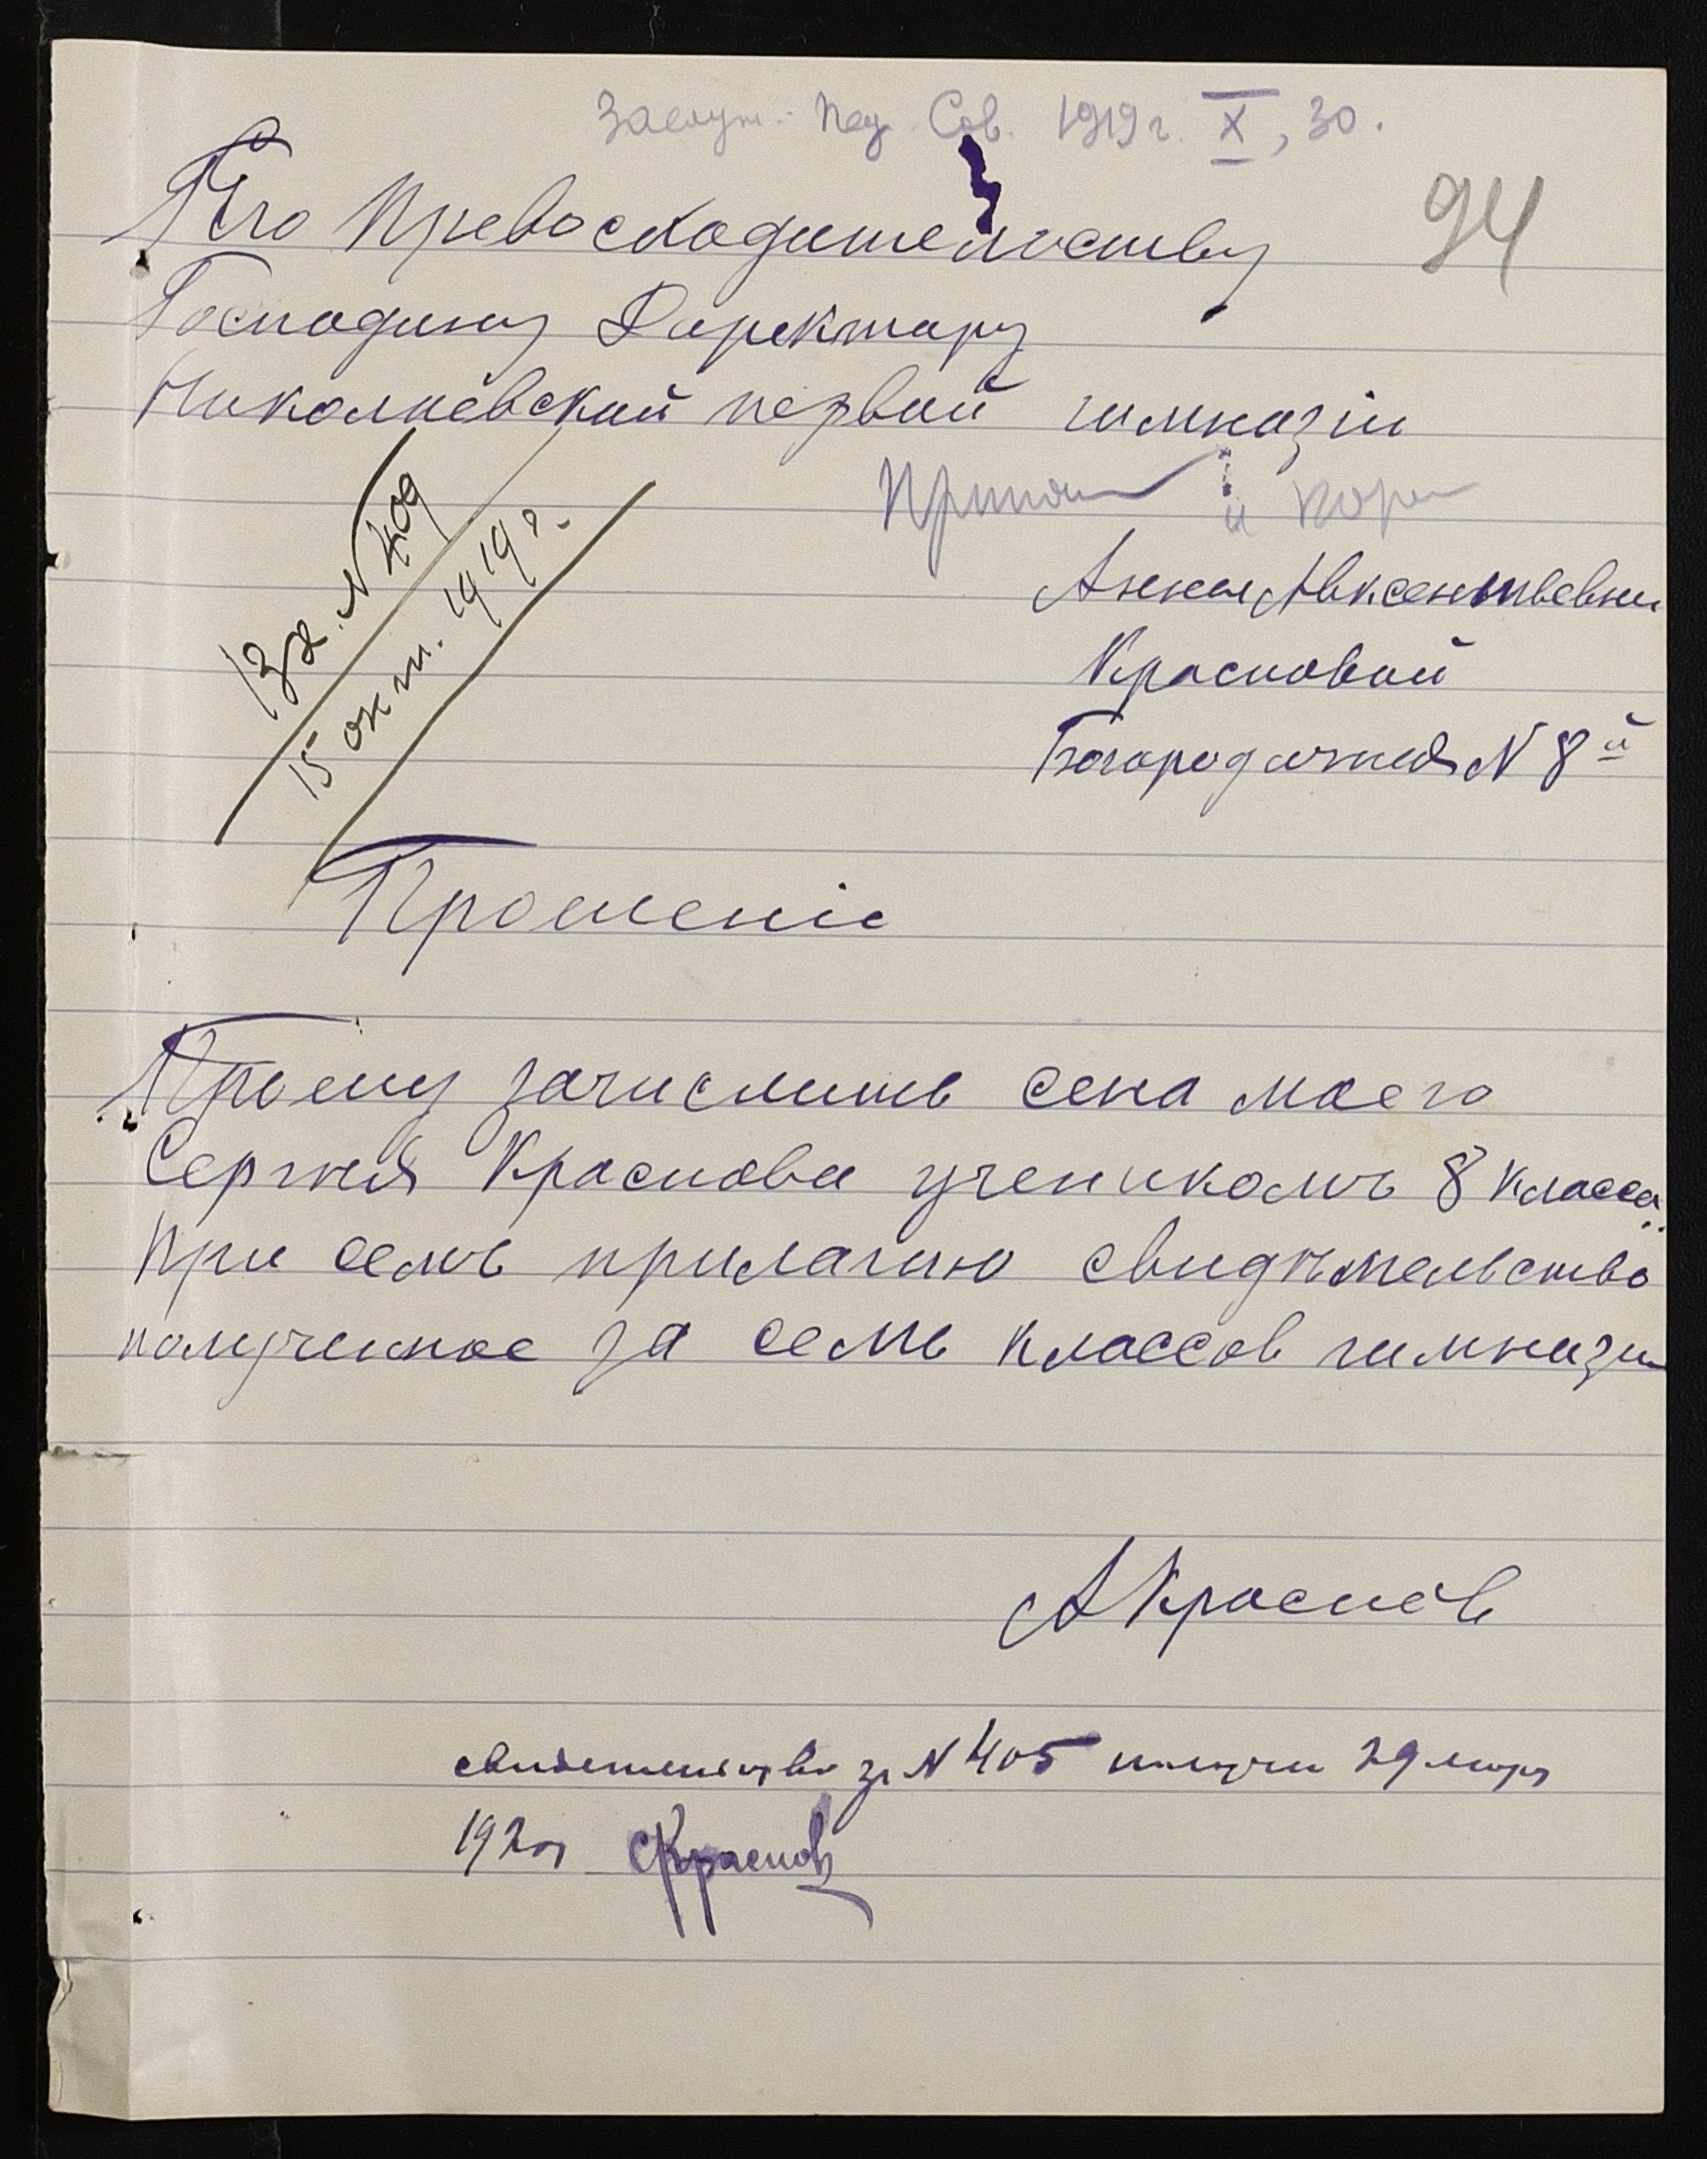 Пед. Сов. 1919 г. X, 30.
94
Его Превосходительству
Господину Директору
Николаевской первой гимназіи
Вх. N 409
15 окт. 1919 г.
и
Анны Авксентьевны
Красновой
Богородичная N 8й
Прошеніе
Прошу зачислить сена моего
Сергѣя Краснова ученикомъ 8 класса.
При семъ прилагаю свидѣтельство
полученное за семь классов гимназіи
А Краснов
свидетельство за N 405 получил 29 мар
1920г СКраснов